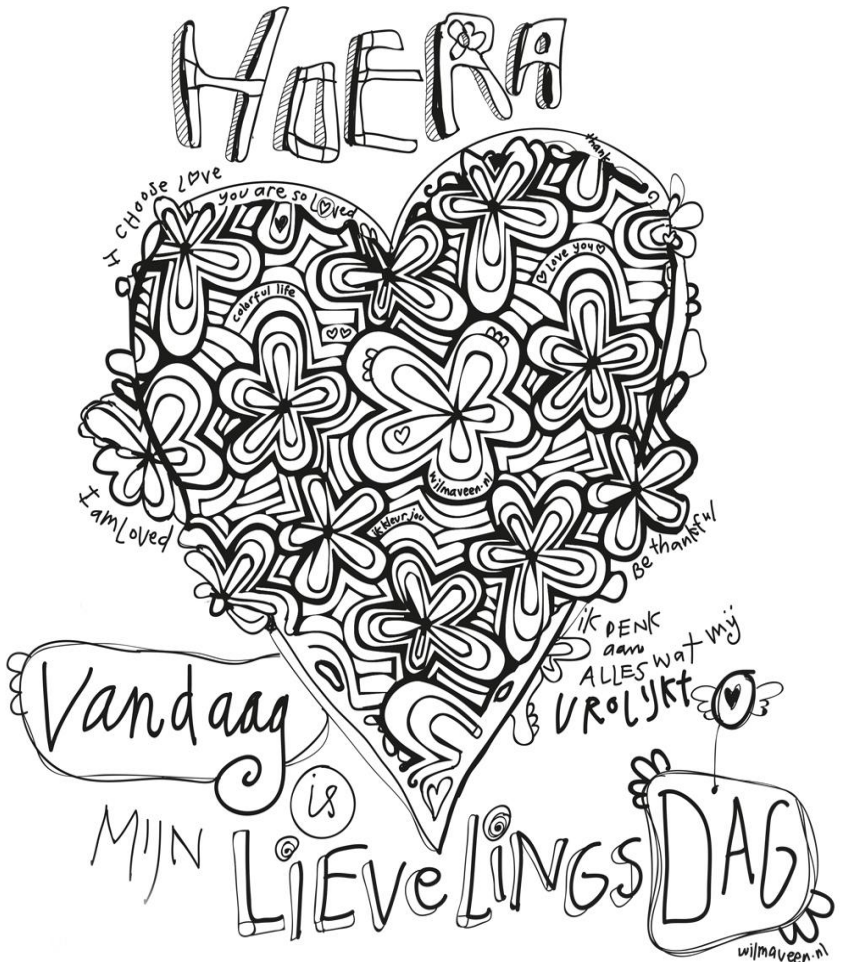 HOERA
I CHOOSE LOVE
you are so Loved
thank
Love you
colorful life
wilmaveen.nl
ik kleur jou
I am Loved
Be thankful
ik DENK
aan
ALLES wat mij
VROLIJKT
Vandaag
is
MIJN
LiEVELiNGS
DAG
wilmaveen.nl